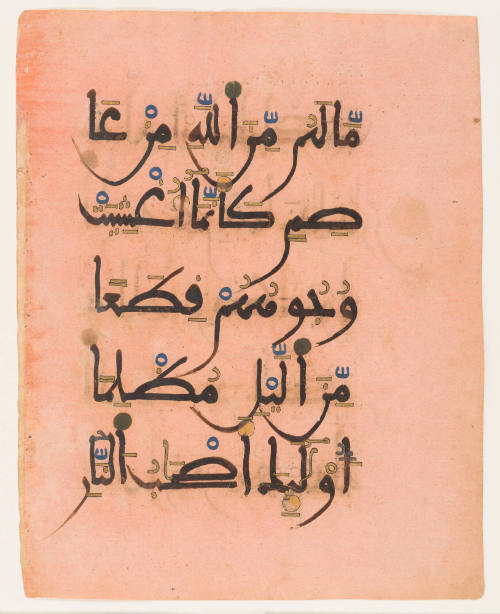 مَّا لَهُم مِّنَ اَللَّهِ مِنْ عَا
صِمٍ كَأَنَّمَا أُغْشِيَتْ
وُجُوهُهُمْ قِطَعًا
مِّنَ اَلَّيْلِ مُظْلِمًا
أُوْلَٰئِكَ أَصْحَٰبُ اَلنَّارِ